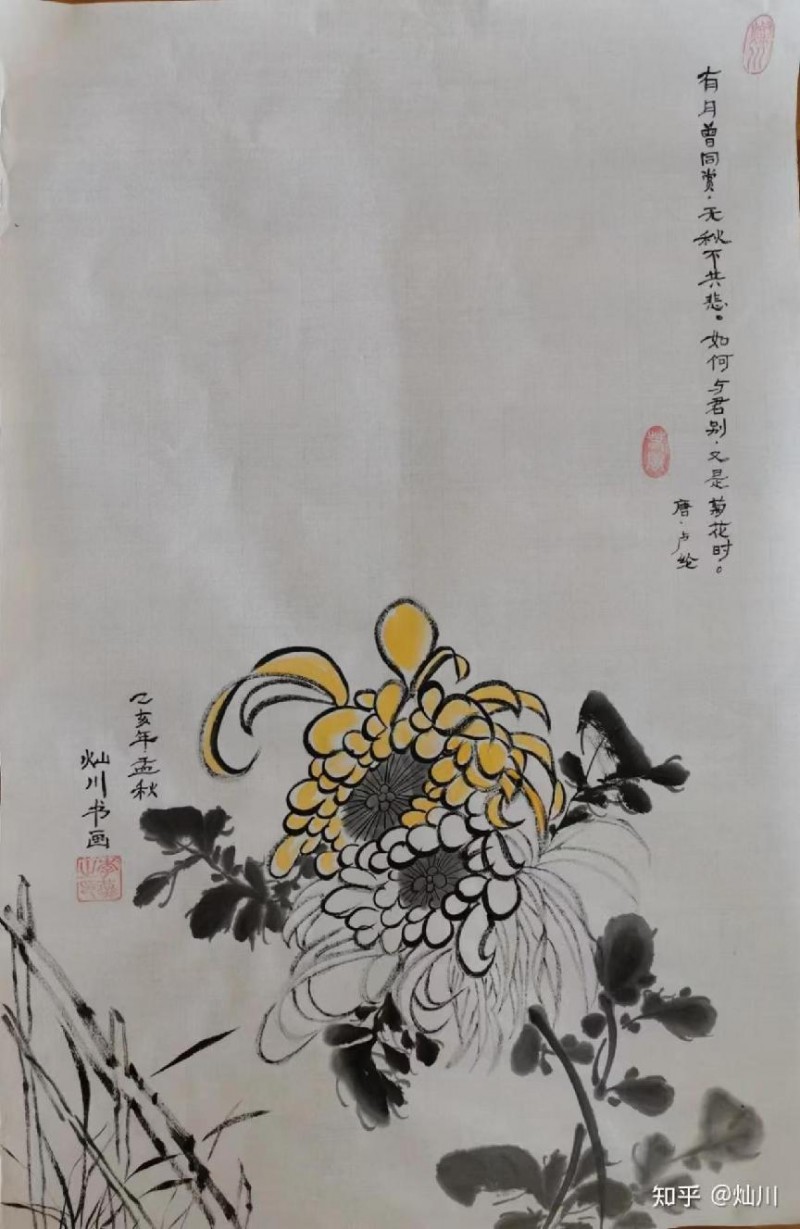 有月曾同赏．无秋不共悲。如何与君别．又是菊花时。
唐．卢纶
乙亥年孟秋
灿川书画
知乎 @灿川